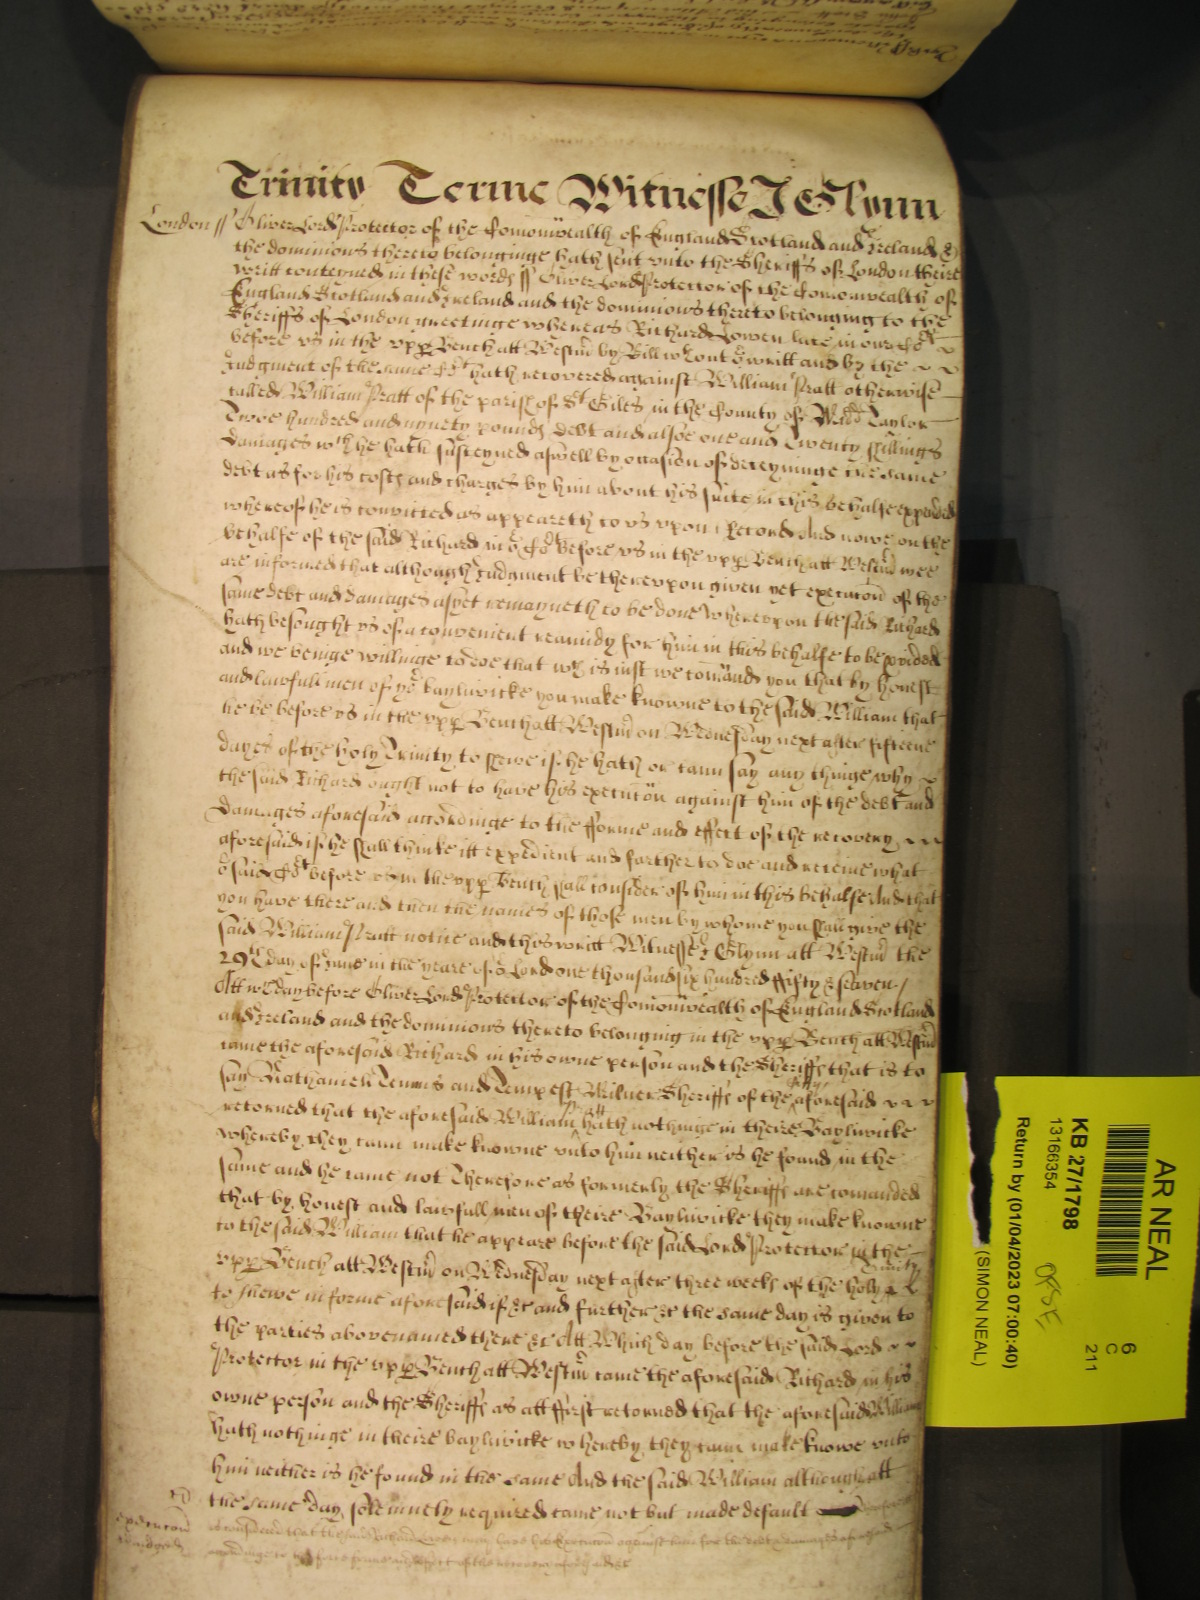 Trinity Terme Witnesse J Glynn
London ss Oliver Lord Protector of the Comonwealth of England Scotland and Ireland &
the dominions thereto belonginge hath sent unto the Sheriffs of London theire
writt conteyned in these words ss Oliver Lord Protector of the Comonwealth of
England Scotland and Ireland and the dominions thereto belonging to the
Sheriffs of London greetinge whereas Richard Lowen late in our Cort
before us in the upp Bench att Westm by Bill wthout or writt and by the
Judgment of the same Cort hath recovered against William Pratt otherwise
called William Pratt of the parish of St Giles in the County of Midd Taylor
Twoe hundred and nynety pounds debt and alsoe one and Twenty shillings
damages wch he hath susteyned aswell by occasion of deteyninge the same
debt as for his costs and charges by him about his suite in this behalfe expended
whereof he is convicted as appeareth to us upon Record And nowe on the
behalfe of the said Richard in or Cort before us in the upp Bench att Westm wee
are informed that although Judgment be thereupon given yet execucon of the
same debt and damages as yet remayneth to be done Whereupon the said Richard
hath besought us of a convenient remidy for him in this behalfe to be pvided
and we beinge willinge to doe that wch is just we comand you that by honest
and lawfull men of yor bayliwicke you make knowne to the said William that
he be before us in the upp Bench att Westm on Wednesday next after fifteene
dayes of the holy Trinity to shewe if he hath or cann say any thinge why
the said Richard ought not to have his execucon against him of the debt and
damages aforesaid accordinge to the fforme and effect of the recovery
aforesaid if he shall thinke itt expedient and farther to doe and receive what
or said Cort before us in the upp Bench shall consider of him in this behalfe And that
you have there and then the names of those men by whome you shall give the
said William Pratt notice and this writt Witnesse J Glynn att Westm the
29th day of June in the yeare of or Lord one thousand six hundred ffifty & seaven /
Att wch day before Oliver Lord Protector of the Comonwealth of England Scotland
and Ireland and the dominions thereto belonging in the upp Bench att Westm
came the aforesaid Richard in his owne person and the Sheriffs that is to
say Nathaniell Temms and Tempest Milner Sheriffs of the Citty aforesaid
returned that the aforesaid William Pratt hath nothinge in theire Bayliwicke
whereby they cann make knowne unto him neither is he found in the
same and he came not Therefore as formerly the Sheriffs are comanded
that by honest and lawfull men of theire Bayliwicke they make knowne
to the said William that he appeare before the said Lord Protector in the
upp Bench att Westm on Wednesday next after three weeks of the holy Trinity
to shewe in forme aforesaid if &c and further &c the same day is given to
the parties abovenamed there &c Att Which day before the said Lord
Protector in the upp Bench att Westm came the aforesaid Richard in his
owne person and the Sheriffs as att ffirst returned that the aforesaid William
hath nothinge in theire bayliwicke whereby they cann make knowne unto
him neither is he found in the same And the said William although att
the same day solemnely required came not but made default Therefore
execucon
is considered that the said Richard Lowen may have his Execucon against him for the debt & damages aforesaid
accordinge to the force forme and effect of the recovery aforesaid &c
AR NEAL
KB 27/1798
13166354
Return by (01/04/2023 07:00:40)
(SIMON NEAL)
6
C
211